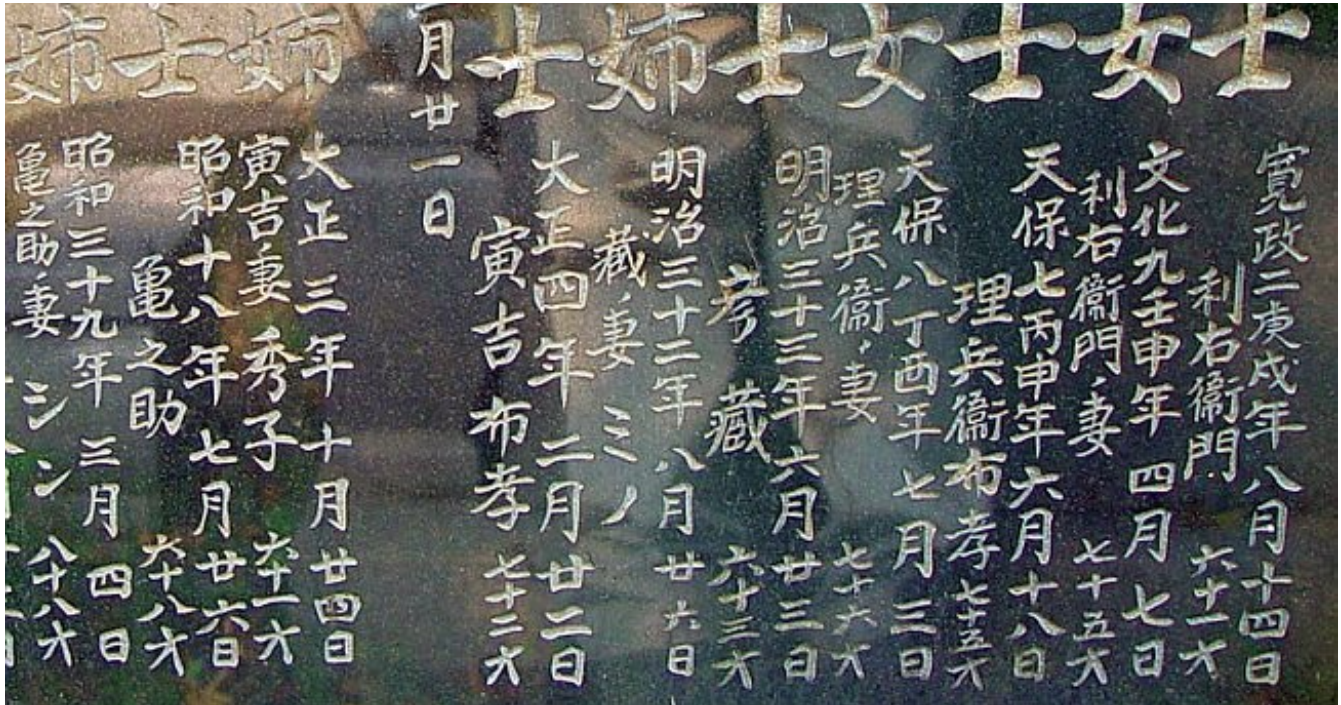 士
寛政二庚戌年八月十四日
利右衞門 六十一才
女
文化九壬申年 四月 七日
利右衞門、妻 七十五才
士
天保七丙申年六月十八日
理兵衞布孝七十五才
女
天保八丁酉年 七月三日
理兵衞、妻 七十六才
士
明治三十三年六月廿三日
藏 六十三才
姉
明治三十二年 八月 廿六日
藏、妻 ミノ
士
大正四年 二月廿二日
寅吉 布孝 七十二才
月廿一日
姉
大正 三年 十月 廿四日
寅吉妻 秀子 六十一才
士
昭和十八年 七月廿六日
亀之助 六十八才
姉
昭和三十九年 三月 四日
亀之助、妻 シン 八十八才